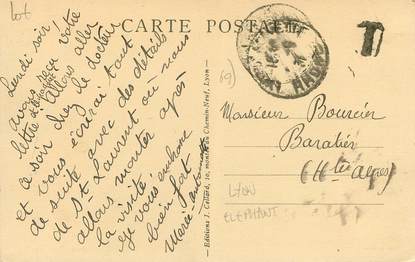 lot
CARTE POSTALE
Lundi soir
avons reçu votre
lettre allons aller
ce soir chez le docteur
et vous écrirai tout
de suite avec des détails
de St Laurent où nous
allons monter après
la visite
Je vous embrasse
bien fort
Marie
Editions J. Cellard, 10, montée du Chemin-Neuf, Lyon
T
69)
Monsieur Bourcier
Baratier
(Htes alpes)
LYON
ELEPHANT